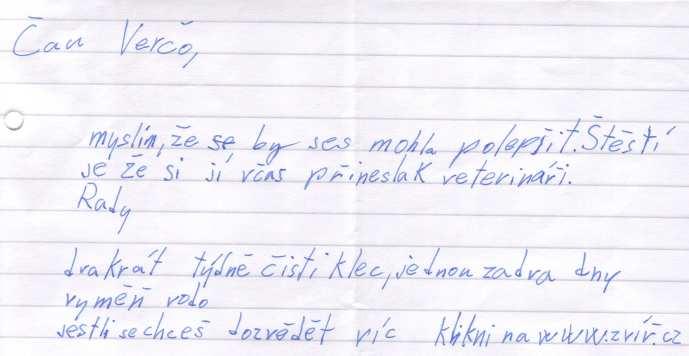 Čau Verčo,
myslim, že se by ses mohla polepšit. Štěstí
je že si jí včas přineslak veterináři.
Rady
dvakrát týdně čisti klec, jednou zadva dny
vyměň vodo
jestli se chceš dozvědět víc klikni na www.zvíř.cz